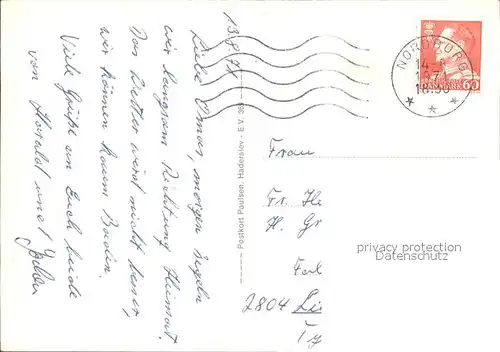 13.8.71
Liebe Omas, morgen segeln
wir langsam Richtung Heimat.
Das Wetter wird nicht besser,
wir können kaum Baden.
Viele Grüße an Euch beide
von Harald und
Postkort Paulsen, Haderslev - E.V. 36
NORDBORG
14-8
1971
18.30
DANMARK 60
Frau
Fr. He
H. Gr
Fal
2804 Li
privacy protection
Datenschutz